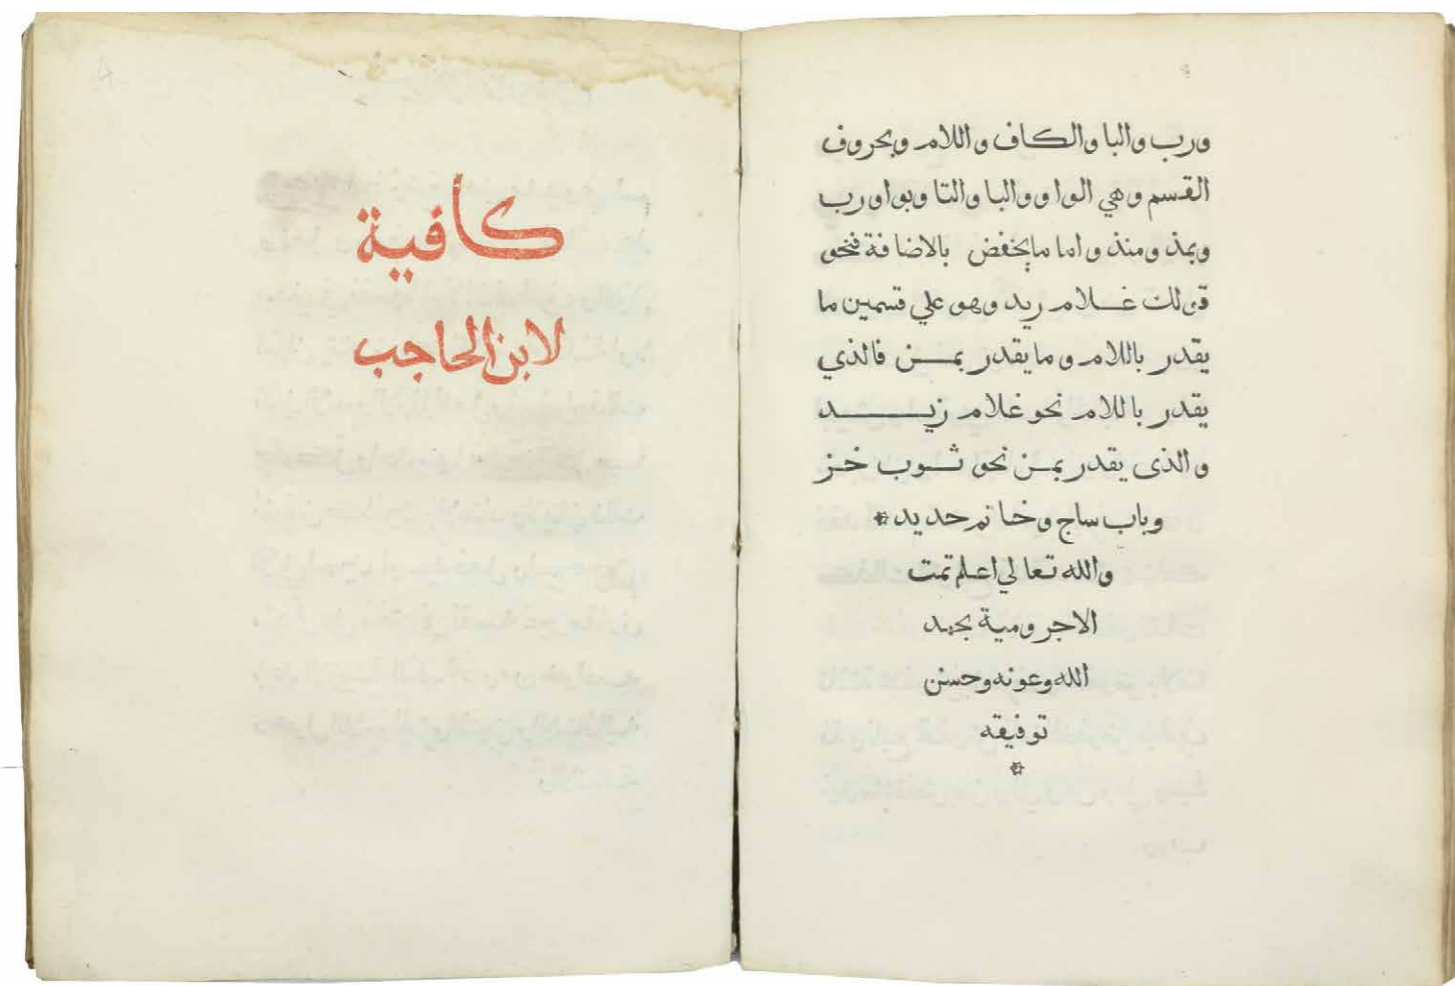 ورب والبا والكاف واللام وبحروف
القسم وهي الواو والبا والتا وبواو رب
وبمذ ومنذ واما ما يخفض بالاضافة فنحو
قولك غلام ريد وهو علي قسمين ما
يقدر باللام وما يقدر بمن فالذي
يقدر باللام نحو غلام زيد
والذى يقدر بمن نحو ثوب خز
وباب ساج وخاتم حديد *
والله تعالي اعلم تمت
الاجرومية بحمد
الله وعونه وحسن
توفيقه
*
كأفية
لابن الحاجب